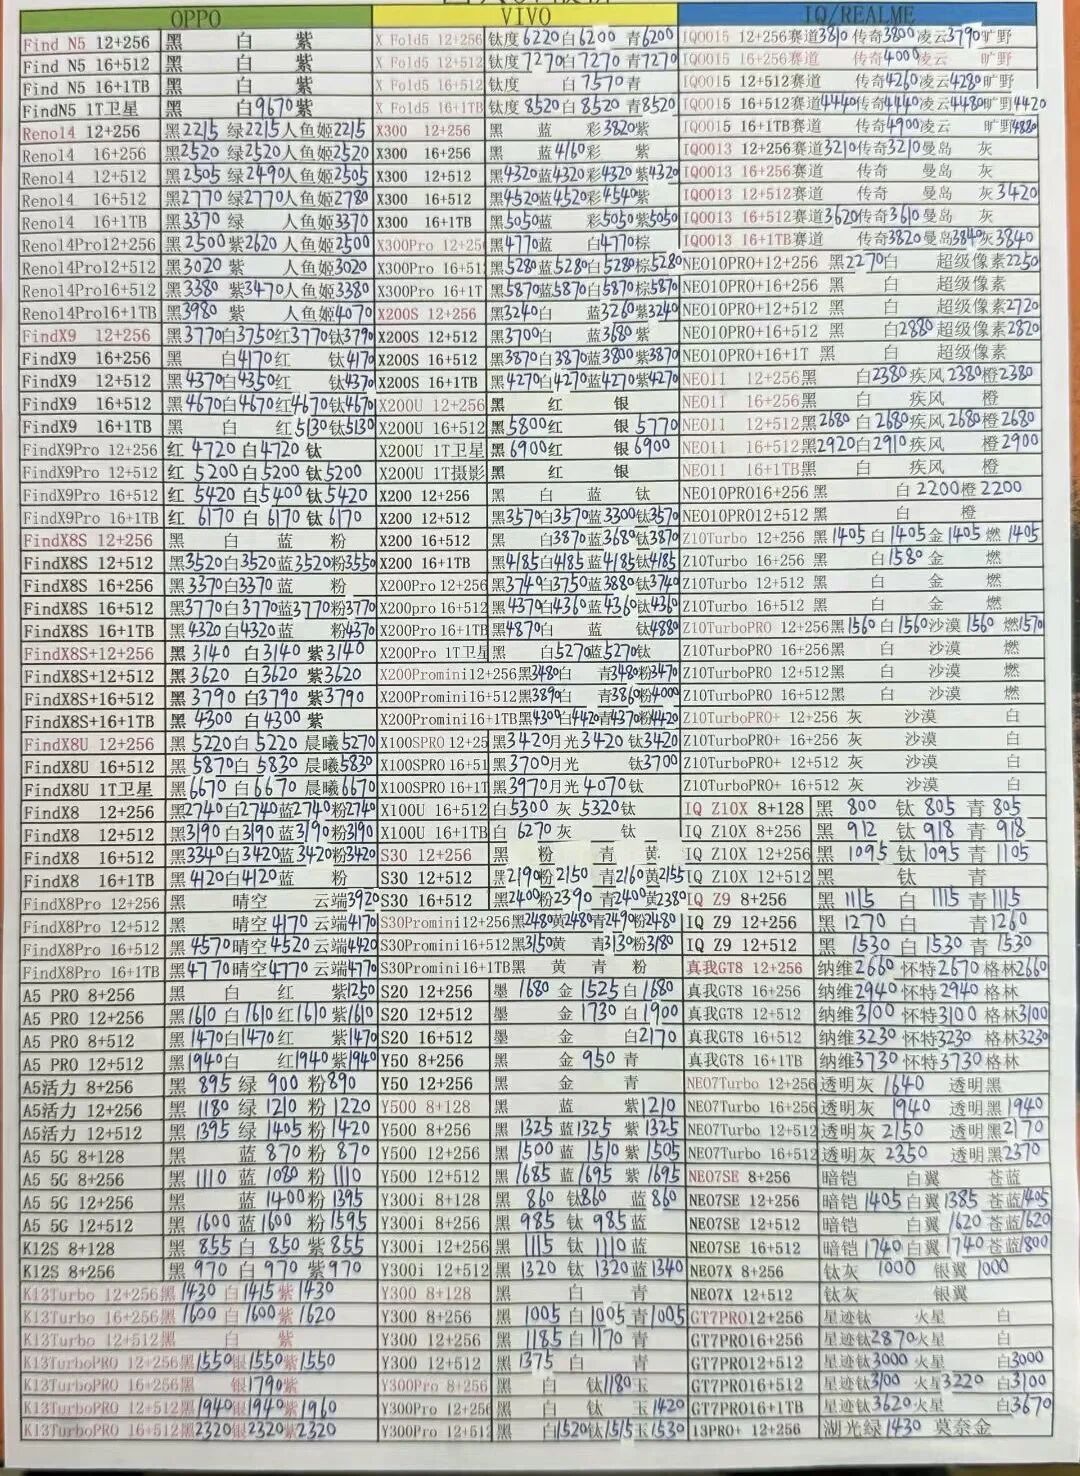 OPPO
Find N5 12+256 黑 白 紫
Find N5 16+512 黑 白 紫
Find N5 16+1TB 黑 白 紫
FindN5 1T卫星 黑 白9670紫
Reno14 12+256 黑2215 绿2215人鱼姬2215
Reno14 16+256 黑2520 绿2520人鱼姬2520
Reno14 12+512 黑2505 绿2490人鱼姬2505
Reno14 16+512 黑2770 绿2770人鱼姬2780
Reno14 16+1TB 黑3370 绿 人鱼姬3370
Reno14Pro12+256 黑2500紫2620 人鱼姬2500
Reno14Pro12+512 黑3020 紫 人鱼姬3020
Reno14Pro16+512 黑3380 紫3470人鱼姬3380
Reno14Pro16+1TB 黑3980 紫 人鱼姬4070
FindX9 12+256 黑3770白3750红3770钛3790
FindX9 16+256 黑 白4170红 钛4170
FindX9 12+512 黑4370白4350红 钛4370
FindX9 16+512 黑4670白4670红4670钛4670
FindX9 16+1TB 黑 白 红5130钛5130
FindX9Pro 12+256 红 4720 白4720 钛
FindX9Pro 12+512 红 5200 白5200 钛5200
FindX9Pro 16+512 红 5420 白5400 钛5420
FindX9Pro 16+1TB 红 6170 白 6170 钛 6170
FindX8S 12+256 黑 白 蓝 粉
FindX8S 12+512 黑3520白3520蓝3520粉3550
FindX8S 16+256 黑3370白3370蓝 粉
FindX8S 16+512 黑3770白3770蓝3770粉3770
FindX8S 16+1TB 黑4320白4320蓝 粉4370
FindX8S+12+256 黑 3140 白3140 紫3140
FindX8S+12+512 黑 3620 白3620 紫3620
FindX8S+16+512 黑 3790 白3790 紫3790
FindX8S+16+1TB 黑 4300 白4300 紫
FindX8U 12+256 黑 5220白 5220 晨曦5270
FindX8U 16+512 黑 5870白 5830 晨曦5830
FindX8U 1T卫星 黑 6670 白6670 晨曦6670
FindX8 12+256 黑2740白2740蓝2740粉2740
FindX8 12+512 黑3190白3190蓝3190粉3190
FindX8 16+512 黑3340白3420蓝3420粉3420
FindX8 16+1TB 黑4120白4120蓝 粉
FindX8Pro 12+256 黑 晴空 云端3920
FindX8Pro 12+512 黑 晴空 4170 云端4170
FindX8Pro 16+512 黑 4570晴空 4520 云端4420
FindX8Pro 16+1TB 黑4770晴空 4770 云端4770
A5 PRO 8+256 黑 白 红 紫1250
A5 PRO 12+256 黑1610 白1610红1610紫1610
A5 PRO 8+512 黑1470白1470红 紫1470
A5 PRO 12+512 黑1940白 红1940紫1940
A5活力 8+256 黑 895 绿 900 粉890
A5活力 12+256 黑 1180 绿 1210 粉 1220
A5活力 12+512 黑 1395 绿 1405 粉 1420
A5 5G 8+128 黑 蓝 870 粉 870
A5 5G 8+256 黑 1110 蓝 1080 粉 1110
A5 5G 12+256 黑 蓝 1400粉 1395
A5 5G 12+512 黑 1600 蓝1600 粉 1595
K12S 8+128 黑 855 白 850 紫855
K12S 8+256 黑 970 白 970 紫970
K13Turbo 12+256黑1430 白1415紫1430
K13Turbo 16+256黑1600 白1600紫1620
K13Turbo 12+512黑 白 紫
K13TurboPRO 12+256黑1550银1550紫1550
K13TurboPRO 16+256黑 银1790紫
K13TurboPRO 12+512黑1940银1940紫1960
K13TurboPRO 16+512黑2320银2320紫2320
VIVO
X Fold5 12+256 钛度6220白6200 青6200
X Fold5 12+512 钛度7270白7270 青7270
X Fold5 16+512 钛度 白 7570青
X Fold5 16+1TB 钛度 8520白 8520 青8520
X300 12+256 黑 蓝 彩3820紫
X300 16+256 黑 蓝4160彩 紫
X300 12+512 黑4320蓝4320彩4320紫4320
X300 16+512 黑4520蓝4520彩4540紫
X300 16+1TB 黑5050蓝 彩5050紫5050
X300Pro 12+25 黑4770蓝 白4770棕
X300Pro 16+51 黑5280蓝5280白5280棕5280
X300Pro 16+1T 黑5870蓝5870白5870棕5870
X200S 12+256 黑3240白 蓝3260紫3240
X200S 12+512 黑3700白 蓝3680紫
X200S 16+512 黑3870白3870蓝3800紫3870
X200S 16+1TB 黑4270白4270蓝4270紫4270
X200U 12+256 黑 红 银
X200U 16+512 黑5800红 银 5770
X200U 1T卫星 黑6900红 银 6900
X200U 1T摄影 黑 红 银
X200 12+256 黑 白 蓝 钛
X200 12+512 黑3570白3570蓝3300钛3570
X200 16+512 黑 白3870蓝3680钛3870
X200 16+1TB 黑4185白4185蓝4185钛4185
X200Pro 12+256 黑3740白3750蓝3880钛3740
X200pro 16+512 黑4370白4360蓝4360钛4360
X200Pro 16+1TB 黑4870白 蓝 钛4880
X200Pro 1T卫星 黑 白5270蓝5270钛
X200Promini12+256黑3480白 青3480粉3470
X200Promini16+512黑3890白 青3860粉4000
X200Promini16+1TB黑4300白4420青4370粉4420
X100SPRO 12+25 黑3420月光3420 钛3420
X100SPRO 16+51 黑3700月光 钛3700
X100SPRO 16+1T 黑3970月光 4070钛
X100U 16+512 白5300 灰 5320钛
X100U 16+1TB 白 6270灰 钛
S30 12+256 黑 粉 青 黄
S30 12+512 黑2190粉2150 青2160黄2155
S30 16+512 黑2400粉2390 青2400黄2380
S30Promini12+256黑2480黄2480青2490粉2480
S30Promini16+512黑3150黄 青3130粉3180
S30Promini16+1TB黑 黄 青 粉
S20 12+256 墨 1680 金 1525 白1680
S20 12+512 墨 金 1730 白1900
S20 16+512 黑 金 白2170
Y50 8+256 黑 金 950 青
Y50 12+256 黑 金 青
Y500 8+128 黑 蓝 紫1210
Y500 8+256 黑 1325 蓝1325 紫 1325
Y500 12+256 黑1500 蓝 1510 紫1505
Y500 12+512 黑1685 蓝1695 紫 1695
Y300i 8+128 黑 860 钛860 蓝 860
Y300i 8+256 黑 985 钛 985蓝
Y300i 12+256 黑 1115 钛 1110蓝
Y300i 12+512 黑 1320 钛 1320蓝1340
Y300 8+128 黑 白 青
Y300 8+256 黑 1005 白1005 青1005
Y300 12+256 黑 1185 白1170 青
Y300 12+512 黑 1375 白 青
Y300Pro 8+256 黑 白 钛1180玉
Y300Pro 12+256 黑 白 钛 玉 1420
Y300Pro 12+512 黑 白1520钛1515玉1530
IQ/REALME
IQOO15 12+256赛道3810 传奇3800凌云3790旷野
IQOO15 16+256赛道 传奇4000凌云 旷野
IQOO15 12+512赛道 传奇4260凌云4280旷野
IQOO15 16+512赛道4440传奇4440凌云4480旷野4420
IQOO15 16+1TB赛道 传奇4900凌云 旷野4880
IQOO13 12+256赛道3210传奇3210曼岛 灰
IQOO13 16+256赛道 传奇 曼岛 灰
IQOO13 12+512赛道 传奇 曼岛 灰3420
IQOO13 16+512赛道3620传奇3610曼岛 灰
IQOO13 16+1TB赛道 传奇3820曼岛3840灰3840
NEO10PRO+12+256 黑2270白 超级像素2250
NEO10PRO+16+256 黑 白 超级像素
NEO10PRO+12+512 黑 白 超级像素2720
NEO10PRO+16+512 黑 白2880超级像素2820
NEO10PRO+16+1T 黑 白 超级像素
NEO11 12+256黑 白2380疾风2380橙2380
NEO11 16+256黑 白 疾风 橙
NEO11 12+512黑2680白2680疾风2680橙2680
NEO11 16+512黑2920白2910疾风 橙2900
NEO11 16+1TB黑 白 疾风 橙
NEO10PRO16+256 黑 白2200橙2200
NEO10PRO12+512 黑 白 橙
Z10Turbo 12+256 黑1405白1405金1405燃1405
Z10Turbo 16+256 黑 白1580金 燃
Z10Turbo 12+512 黑 白 金 燃
Z10Turbo 16+512 黑 白 金 燃
Z10TurboPRO 12+256黑1560白1560沙漠1560 燃1570
Z10TurboPRO 16+256黑 白 沙漠 燃
Z10TurboPRO 12+512黑 白 沙漠 燃
Z10TurboPRO 16+512黑 白 沙漠 燃
Z10TurboPRO+ 12+256 灰 沙漠 白
Z10TurboPRO+ 16+256 灰 沙漠 白
Z10TurboPRO+ 12+512 灰 沙漠 白
Z10TurboPRO+ 16+512 灰 沙漠 白
IQ Z10X 8+128 黑 800 钛 805 青 805
IQ Z10X 8+256 黑 912 钛 918 青 918
IQ Z10X 12+256 黑 1095 钛 1095 青 1105
IQ Z10X 12+512 黑 钛 青
IQ Z9 8+256 黑 1115 白 1115 青1115
IQ Z9 12+256 黑 1270 白 青1260
IQ Z9 12+512 黑 1530 白 1530 青 1530
真我GT8 12+256 纳维2660 怀特2670 格林2660
真我GT8 16+256 纳维2940怀特2940 格林
真我GT8 12+512 纳维3100怀特3100 格林3100
真我GT8 16+512 纳维3230怀特3230 格林3230
真我GT8 16+1TB 纳维3730怀特3730格林
NEO7Turbo 12+256 透明灰 1640 透明黑
NEO7Turbo 16+256 透明灰 1940 透明黑1940
NEO7Turbo 12+512 透明灰 2150 透明黑2170
NEO7Turbo 16+512 透明灰 2350 透明黑2370
NEO7SE 8+256 暗铠 白翼 苍蓝
NEO7SE 12+256 暗铠1405白翼1385 苍蓝1405
NEO7SE 12+512 暗铠 白翼 1620苍蓝1620
NEO7SE 16+512 暗铠1740白翼1740苍蓝1800
NEO7X 8+256 钛灰 1000 银翼 1000
NEO7X 12+512 钛灰 银翼
GT7PRO12+256 星迹钛 火星 白
GT7PRO16+256 星迹钛2870火星 白
GT7PRO12+512 星迹钛3000 火星 白3000
GT7PRO16+512 星迹钛3100 火星3220 白3100
GT7PRO16+1TB 星迹钛3620火星 白3670
13PRO+ 12+256 湖光绿1430 莫奈金